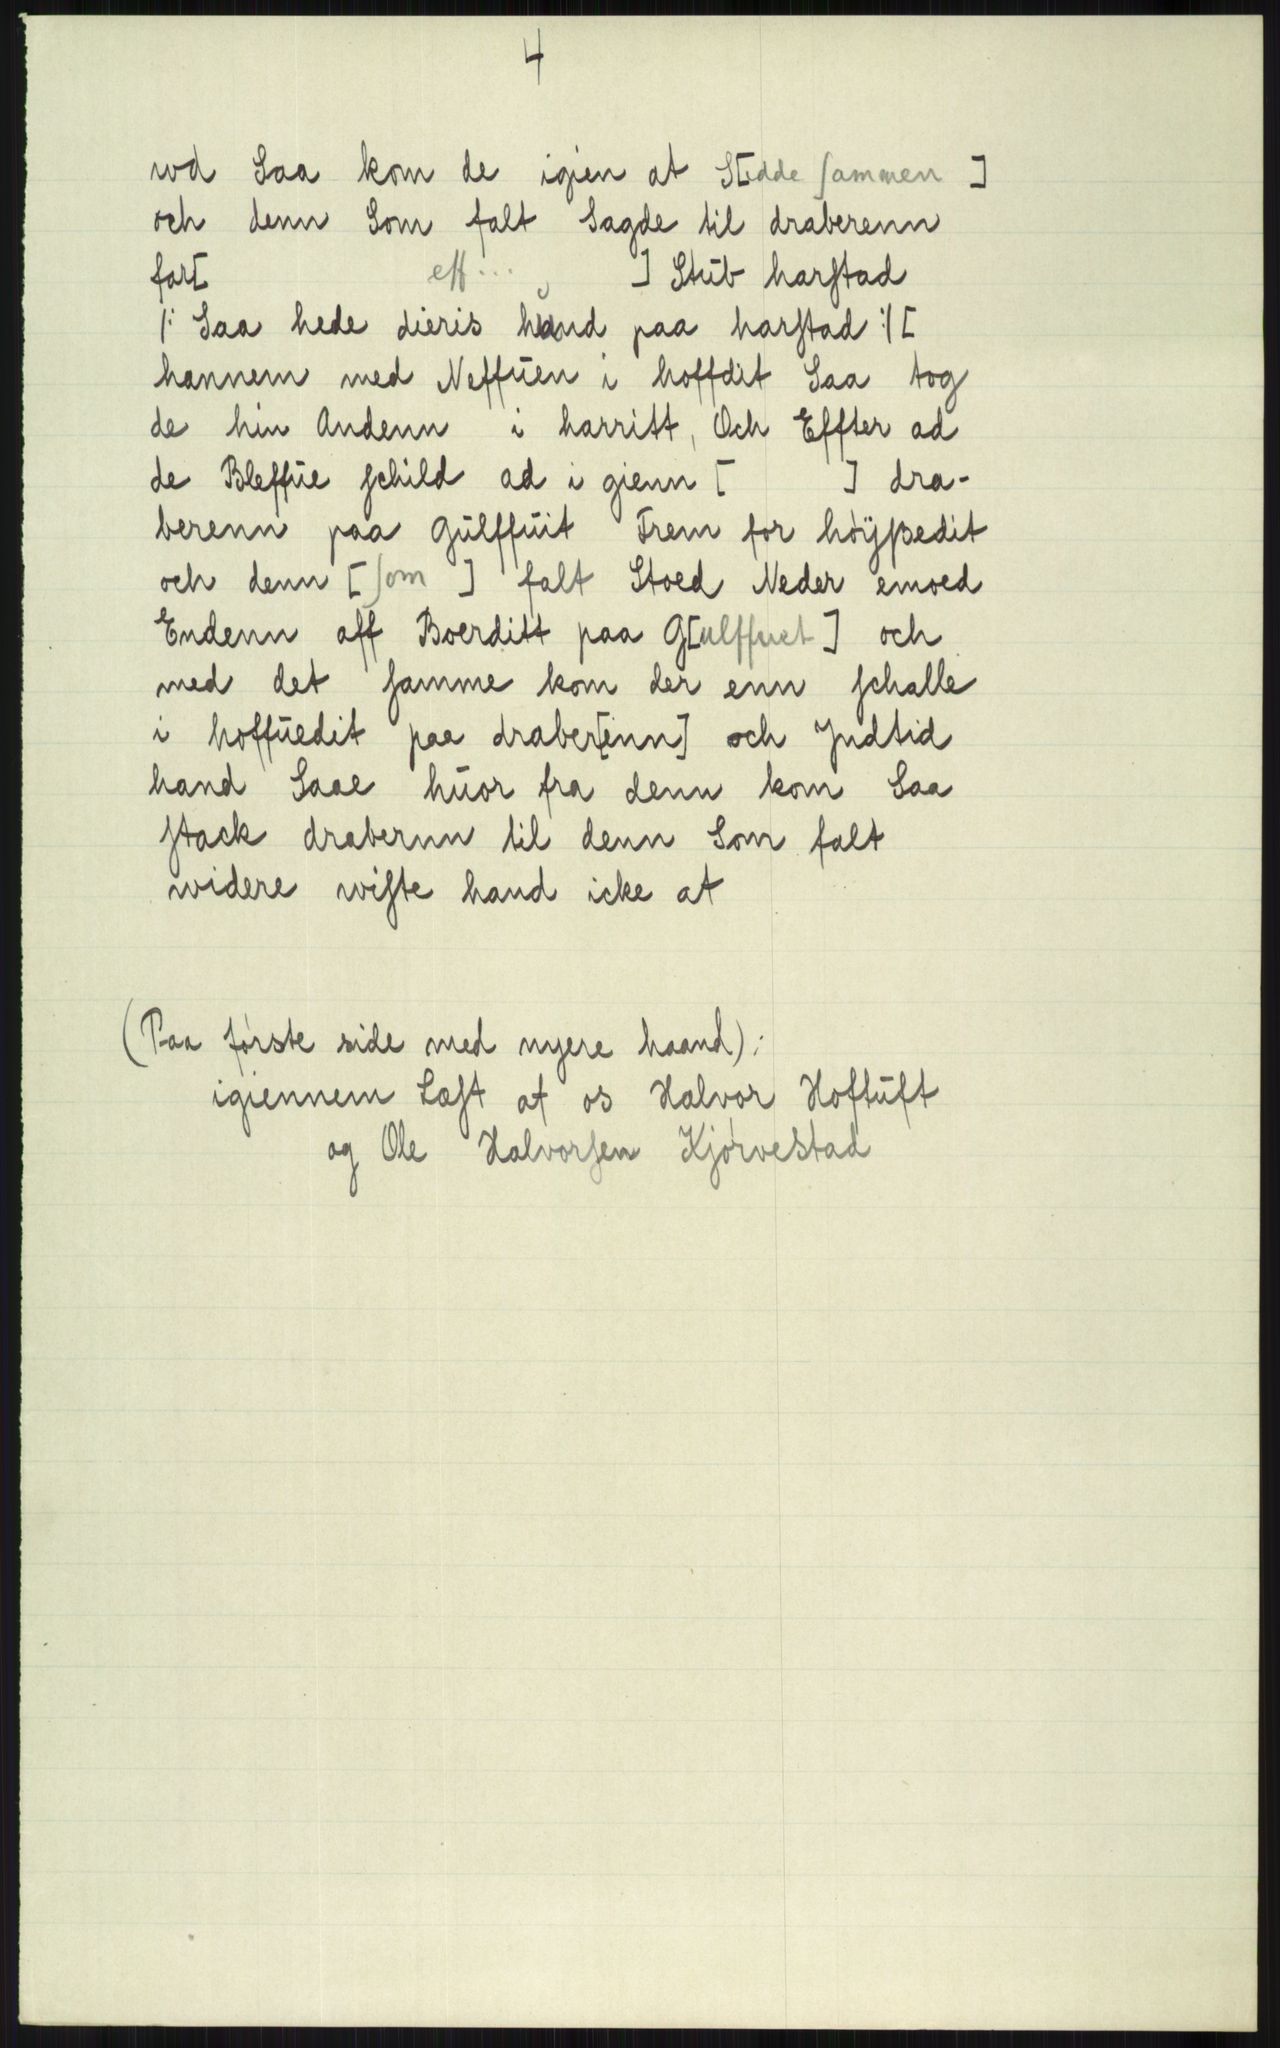 4
wd Saa kom de igien at S[idde sammen ]
och denn Som falt Sagde til draberenn
for[ eff... ] Stüb harstad
/: Saa hede dieris hund paa harstad :/ [
hannem med Neffüen i hoffdit Saa tog
de hin Andenn i harritt, Och Effter ad
de Bleffüe schild ad i gienn [ ] dra-
berenn paa Gülffüit Frem for höÿßedit
och denn [ som ] falt Stoed Neder emoed
Endenn aff Boerditt paa G[ulffuet ] och
med det samme kom der enn schalle
i hoffüedit paa draber[enn] och Indtid
hand Saae hüor fra denn kom Saa
stack drabernn til denn Som falt
widere wiste hand icke at
(Paa første side med nyere haand):
igiennem Læst af os Halvor Hoftüft
og Ole Halvorsen Kjørvestad